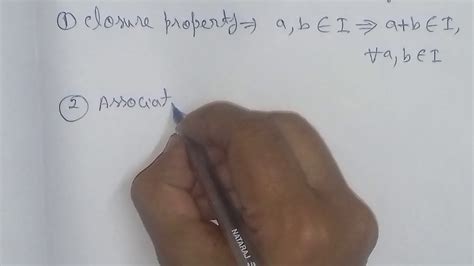 ① Closure property⇒ a,b∈I ⇒ a+b∈I,
∀a,b∈I
② Associat
NATARAJ